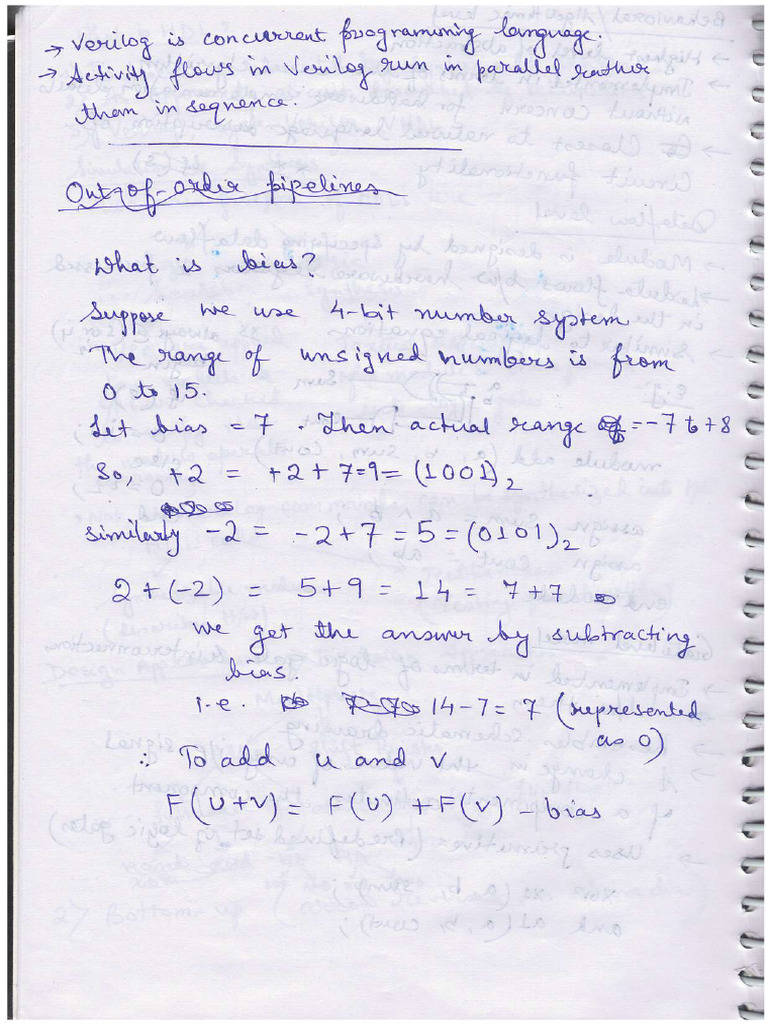 → Verilog is concurrent programming language.
→ Activity flows in Verilog run in parallel rather
them in sequence.
Out-of-order pipelines
What is bias?
Suppose we use 4-bit number system
The range of unsigned numbers is from
0 to 15.
Let bias = 7 . Then actual range = -7 to +8
So, +2 = +2 + 7 = 9 = (1001)₂
similarly -2 = -2 + 7 = 5 = (0101)₂
2 + (-2) = 5 + 9 = 14 = 7 + 7
we get the answer by subtracting
bias.
i.e. 14 - 7 = 7 (represented
as 0)
∴ To add u and v
F(U+V) = F(U) + F(V) - bias